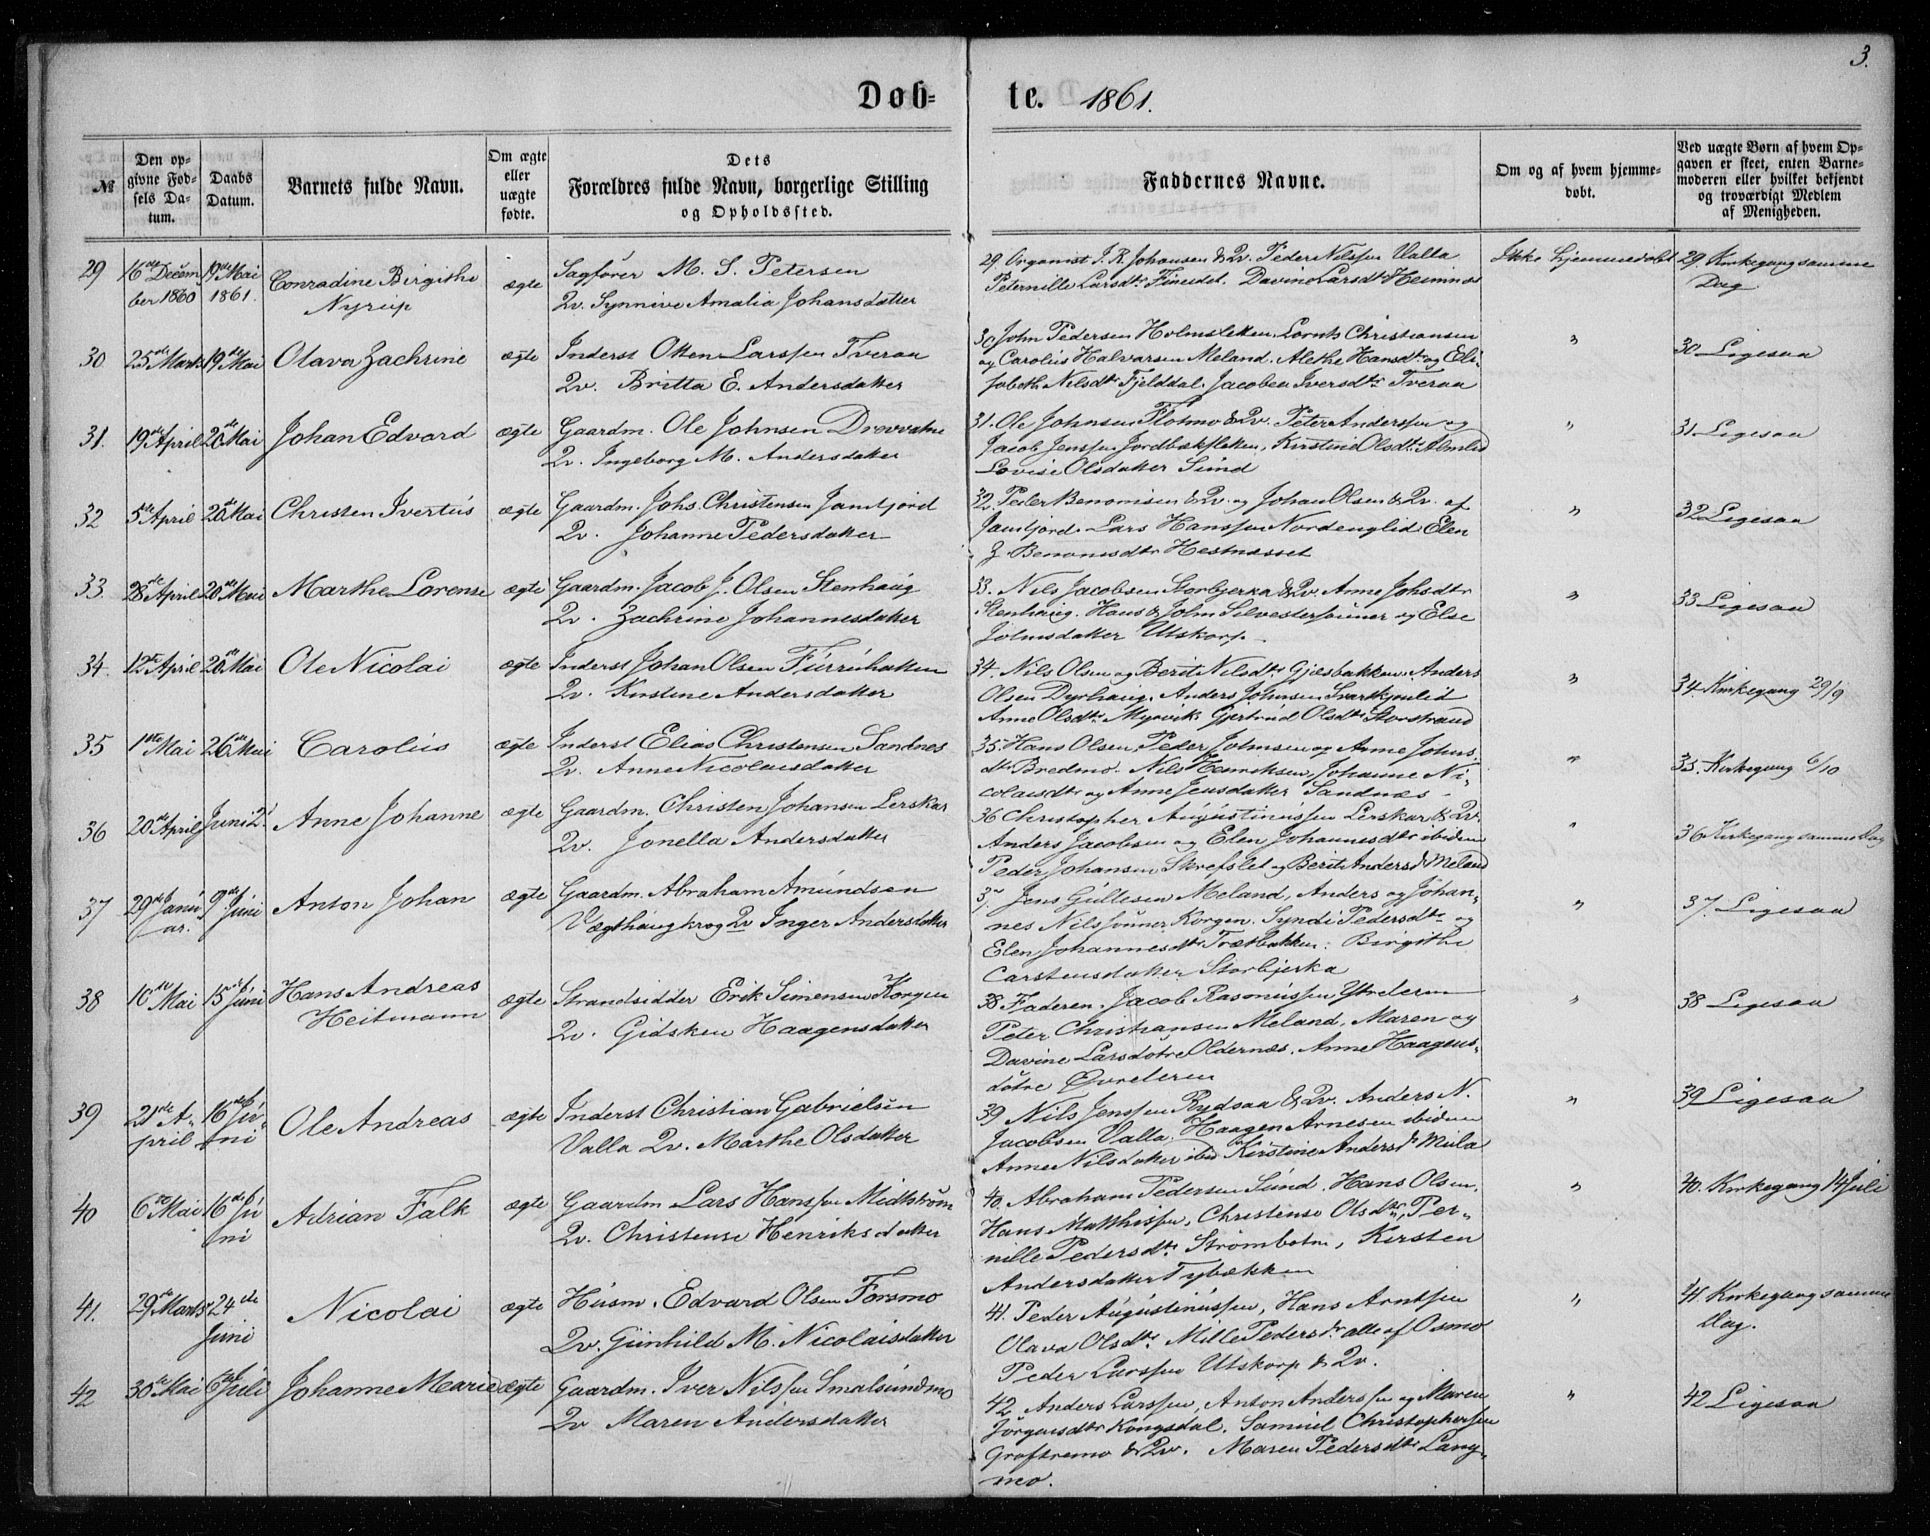 3.
Døb=te. 1861.
№
Den opgivne Fødsels Datum.
Daabs Datum.
Barnets fulde Navn.
Om ægte eller uægte fødte.
Dets Forældres fulde Navn, borgerlige Stilling og Opholdssted.
Faddernes Navne.
Om og af hvem hjemmedøbt.
Ved uægte Børn af hvem Opgaven er skeet, enten Barnemoderen eller hvilket bekjendt og troværdigt Medlem af Menigheden.
29 16de Decem 19de Mai Conradine Birgithe ægte Sagfører M. S. Petersen
ber 1860 1861. Nyrup Qv. Synnive Amalia Johansdatter
29 Organist J. R. Johansen & Qv. Peder Nilssen Valla Ikke hjemmedøbt 29. Kirkegang samme
Peternille Larsdtr Fineidet. Davine Larsdtr Heimnes Dag
30 25de Marts 19de Mai Olava Zachrine ægte Inderst Otten Larssen Tveraa
Qv. Britta E. Andersdatter
30 John Pedersen Holmsletten. Lornts Christiansen " 30 Ligesaa
og Carolius Halvarsen Meland. Alethe Hansdtr og Eli-
sabeth Nilsdtr Fjelddal. Jacobea Iversdtr Tveraa
31. 19de April 20de Mai Johan Edvard ægte Gaardm. Ole Johnsen Drevvatne
Qv. Ingeborg M. Andersdatter
31. Ole Johnsen Flotmo & Qv. Peter Anderssen og " 31 Ligesaa
Jacob Jenssen Jordbækfletten, Kirstine Olsdtr Almlid
Lovise Olsdatter Sund
32 5te April 20de Mai Christen Ivertus ægte Gaardm. Johs. Christensen Jamtjord
Qv. Johanne Pedersdatter
32. Peder Benonisen & Qv. og Johan Olsen & Qv. af " 32 Ligesaa
Jamtjord. Lars Hanssen Nordenglid Elen
G. Benonisdtr Hestnesset
33. 28de April 20de Mai Marthe Lorense ægte Gaardm. Jacob J. Olsen Stenhaug
Qv. Zachrine Johannesdatter
33. Nils Jacobsen Storbjerka & Qv. Anne Johsdtr " 33 Ligesaa
Stenhaug. Hans & John Silvestersønner og Else
Johnsdatter Utskorp
34. 12te April 20de Mai Ole Nicolai ægte Inderst Johan Olsen Furruhatten
Qv. Kirstine Andersdatter
34. Nils Olsen og Berit Nilsdtr Gjesbakken. Anders " 34. Kirkegang 29/9
Olsen Dyrhaug. Anders Johnsen
Anne Olsdtr Myrvik Gjertrud Olsdtr Storstrand
35 1ste Mai 26de Mai Carolius ægte Inderst Elias Christensen Sandnes
Qv. Anne Nicolaisdatter
35. Hans Olsen Peder Johnsen og Anne Johns- " 35. Kirkegang 6/10
dtr Bredmo. Nils Henriksen, Johanne Ni-
colaisdtr og Anne Jensdatter Sandnæs
36 20de April Juni 2. Anne Johanne ægte Gaardm. Christen Johansen Lerskar
Qv. Jonella Andersdatter
36 Christopher Augustinussen Lerskar & Qv " 36 Kirkegang samme Dag
Anders Jacobsen og Elen Johannesdtr ibidem
Peder Johansen Skresslet og Berit Andersd Meland
37 29de Janu 9de Juni Anton Johan ægte Gaardm. Abraham Amundsen
ar. Vægthaugkrog Qv Inger Andersdatter
37 Jens Gullesen Meland, Anders og Johan- " 37. Ligesaa
nes Nilssønner Korgen. Syndi Pedersdtr og
Elen Johannesdtr Trætbakken. Birgithe
Carstensdatter Storbjerka
38 10de Mai 15de Juni Hans Andreas ægte Strandsidder Erik Simensen Korgen
Heitmann Qv. Gidsken Haagensdatter
38 Faderen. Jacob Rasmussen Ytrderen " 38 Ligesaa
Peter Christiansen Meland, Maren og
Davine Larsdøtre Oldernæs. Anne Haagens-
døtre Øvrderen
39 21de A- 16de Ju- Ole Andreas ægte Inderst Christian Gabrielsen
pril ni Valla Qv. Marthe Olsdatter
39 Nils Jenssen Rydsaa & Qv. Anders N. " 39 Ligesaa
Jacobsen Valla. Haagen Arnesen ibidem
Anne Nilsdatter ibid Kirstine Andersd Mula
40 6te Mai 16de Ju Adrian Falk ægte Gaardm Lars Hanssen Midtstrøm
ni Qv. Christense Henriksdatter
40. Abraham Pedersen Sund. Hans Olsen. " 40. Kirkegang 14 Juli
Hans Matthissen, Christense Olsdtr, Per-
nille Pedersdtr Strømbotn, Kirsten
Andersdatter Tybækken
41. 29de Marts 24de Nicolai ægte Husm. Edvard Olsen Forsmo
Juni Qv. Gunhild M. Nicolaisdatter
41. Peder Augustinussen, Hans Arntsen " 41. Kirkegang samme
Olava Olsdtr Mille Pedersdr alle af Osmo Dag.
Peder Larssen Utskorp & Qv.
42 30de Mai Juli Johanne Marie ægte Gaardm. Iver Nilssen Smalsundmo
Qv Maren Andersdatter
42 Anders Larssen, Anton Anderssen og Maren " 42 Ligesaa
Jørgensdtr Kongsdal. Samuel Christophersen
Groftremo & Qv. Maren Pedersdtr Lang-
mo.